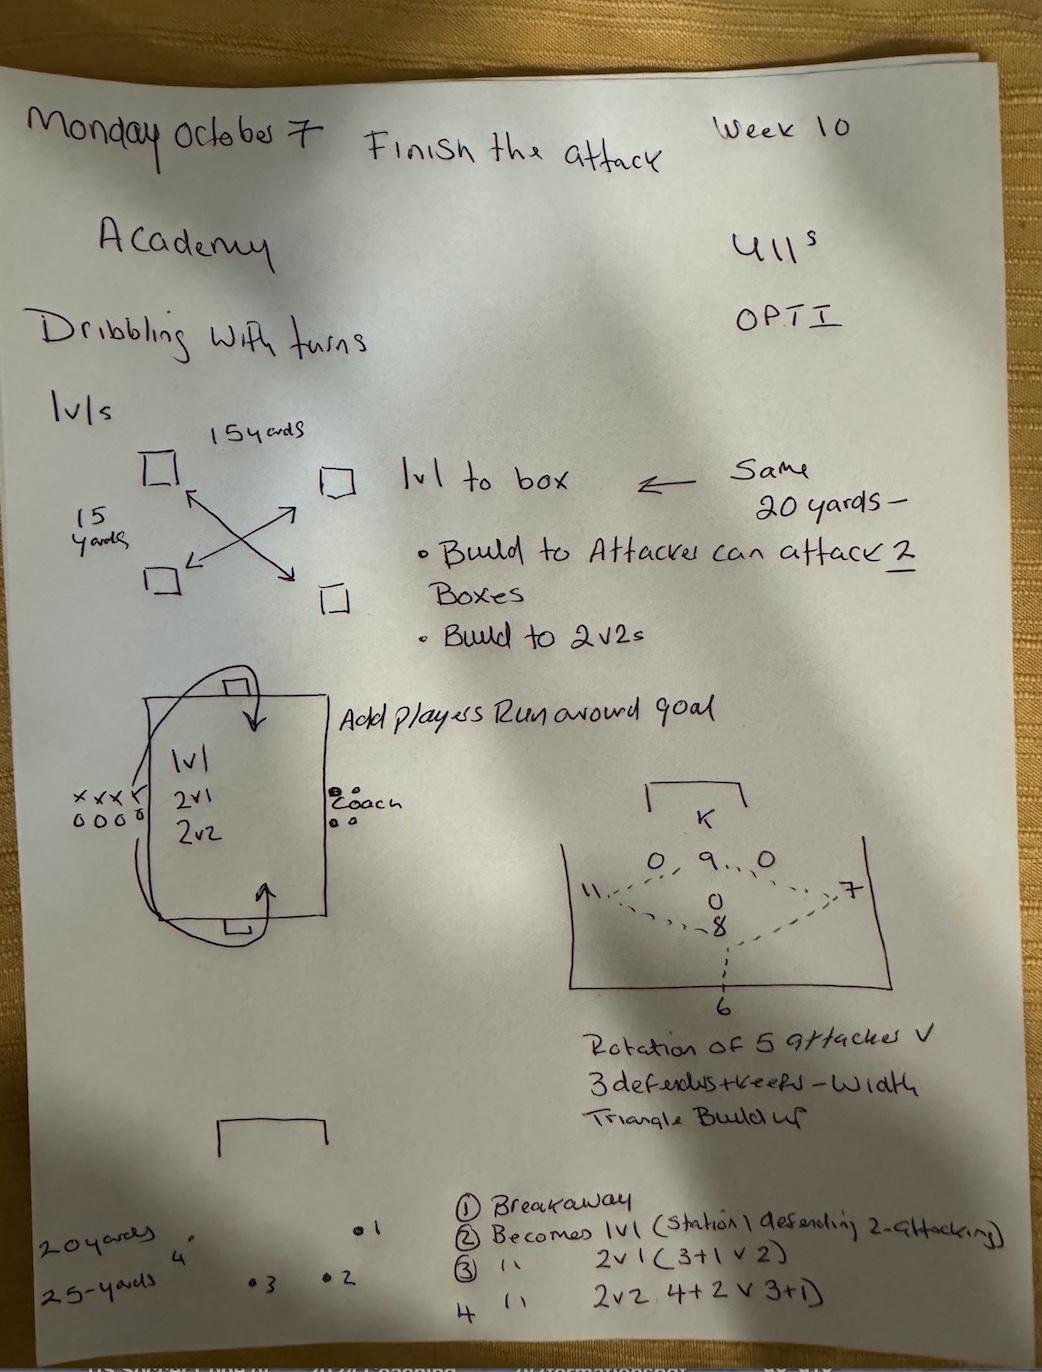 Monday October 7
Finish the attack
Week 10
Academy
U11s
Dribbling with turns
OPTI
1v1s
15 yards
15
yards
1v1 to box
Same
20 yards-
• Build to Attacker can attack 2
Boxes
• Build to 2v2s
Add players Run around goal
1v1
2v1
2v2
x x x x
0 0 0 0
Coach
K
0 9 0
11 7
0
8
6
Rotation of 5 attacker v
3 defenders + keeper - Width
Triangle Build up
20 yards
4
1
25-yards
3
2
① Breakaway
② Becomes 1v1 (station 1 defending 2-attacking)
③ '' 2v1 (3+1 v 2)
4 '' 2v2 4+2 v 3+1)